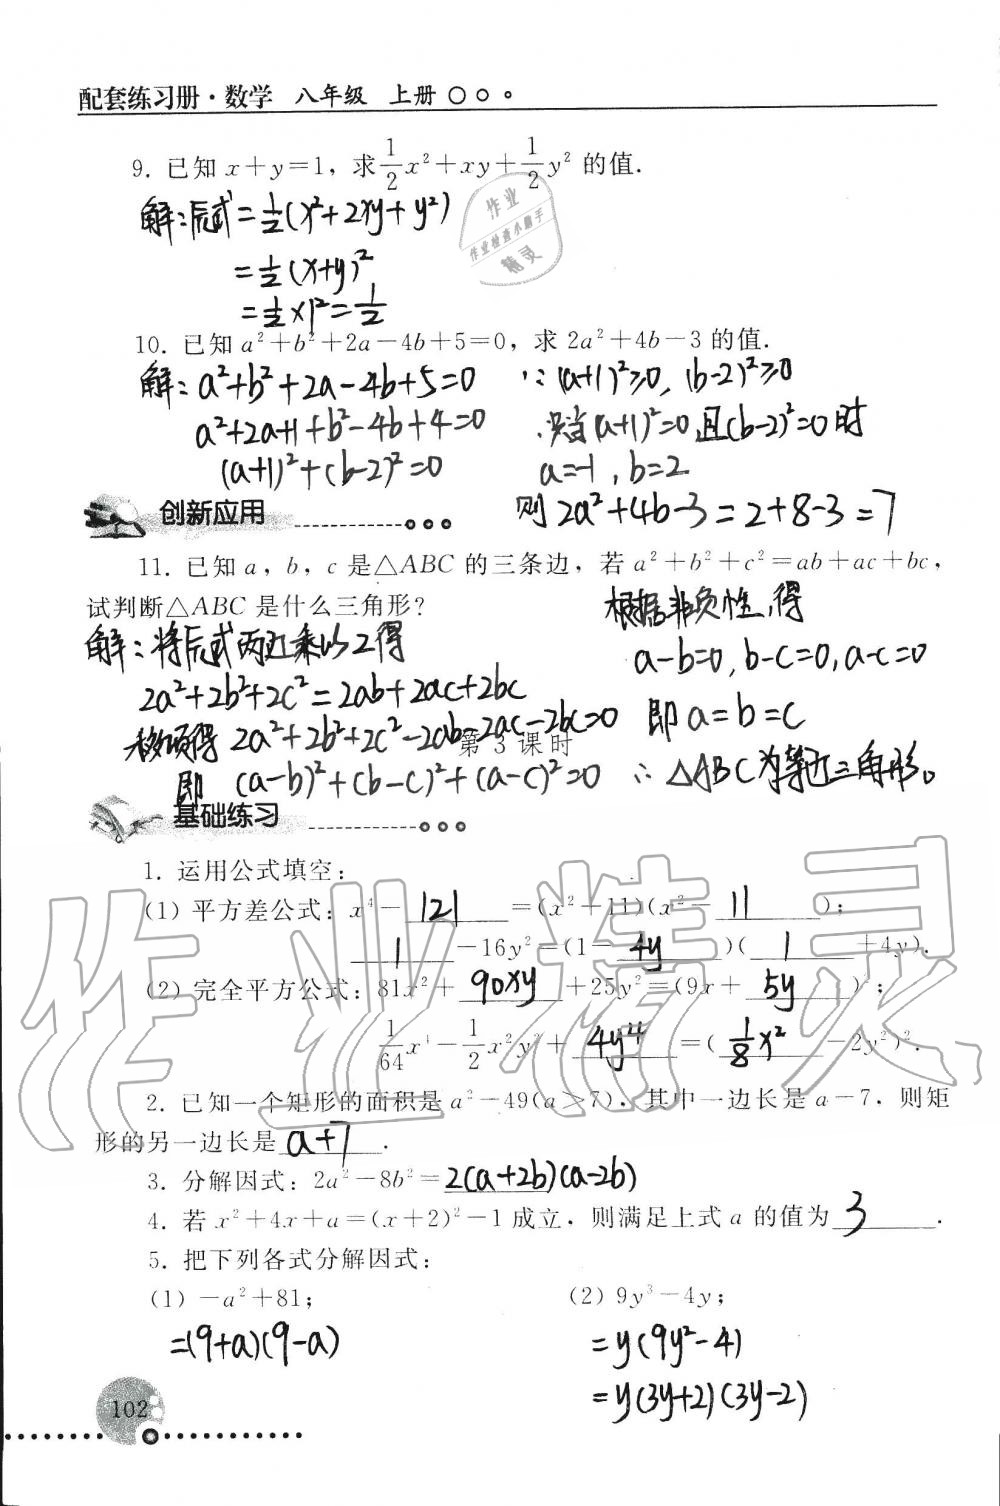 配套练习册·数学 八年级 上册
9. 已知 x+y=1，求\frac{1}{2}x²+xy+\frac{1}{2}y² 的值.
解:原式=\frac{1}{2}(x²+2xy+y²)
=\frac{1}{2}(x+y)²
=\frac{1}{2}×1²=\frac{1}{2}
作业
作业检查小助手
精灵
10. 已知 a²+b²+2a-4b+5=0，求 2a²+4b-3 的值.
解: a²+b²+2a-4b+5=0
a²+2a+1+b²-4b+4=0
(a+1)²+(b-2)²=0
∵(a+1)²≥0, (b-2)²≥0
当(a+1)²=0且(b-2)²=0时
a=-1, b=2
则 2a²+4b-3=2+8-3=7
创新应用
11. 已知 a，b，c 是△ABC 的三条边，若 a²+b²+c²=ab+ac+bc，
试判断△ABC 是什么三角形?
解: 将原式两边乘以2得
2a²+2b²+2c²=2ab+2ac+2bc
移项得 2a²+2b²+2c²-2ab-2ac-2bc=0
即 (a-b)²+(b-c)²+(a-c)²=0
根据非负性,得
a-b=0, b-c=0, a-c=0
即 a=b=c
∴△ABC为等边三角形。
第 3 课时
基础练习
1. 运用公式填空:
(1) 平方差公式: x⁴- 121 =(x²+11)(x²- 11 );
1 -16y²=(1- 4y )( 1 +4y).
(2) 完全平方公式: 81x²+ 90xy +25y²=(9x+ 5y )²;
\frac{1}{64}x⁴-\frac{1}{2}x²y²+ 4y⁴ =( \frac{1}{8}x² -2y²)².
2. 已知一个矩形的面积是 a²-49(a>7)，其中一边长是 a-7，则矩
形的另一边长是 a+7 .
3. 分解因式: 2a²-8b²= 2(a+2b)(a-2b)
4. 若 x²+4x+a=(x+2)²-1 成立，则满足上式 a 的值为 3 .
5. 把下列各式分解因式:
(1) -a²+81; (2) 9y³-4y;
=(9+a)(9-a) =y(9y²-4)
=y(3y+2)(3y-2)
102
作业精灵